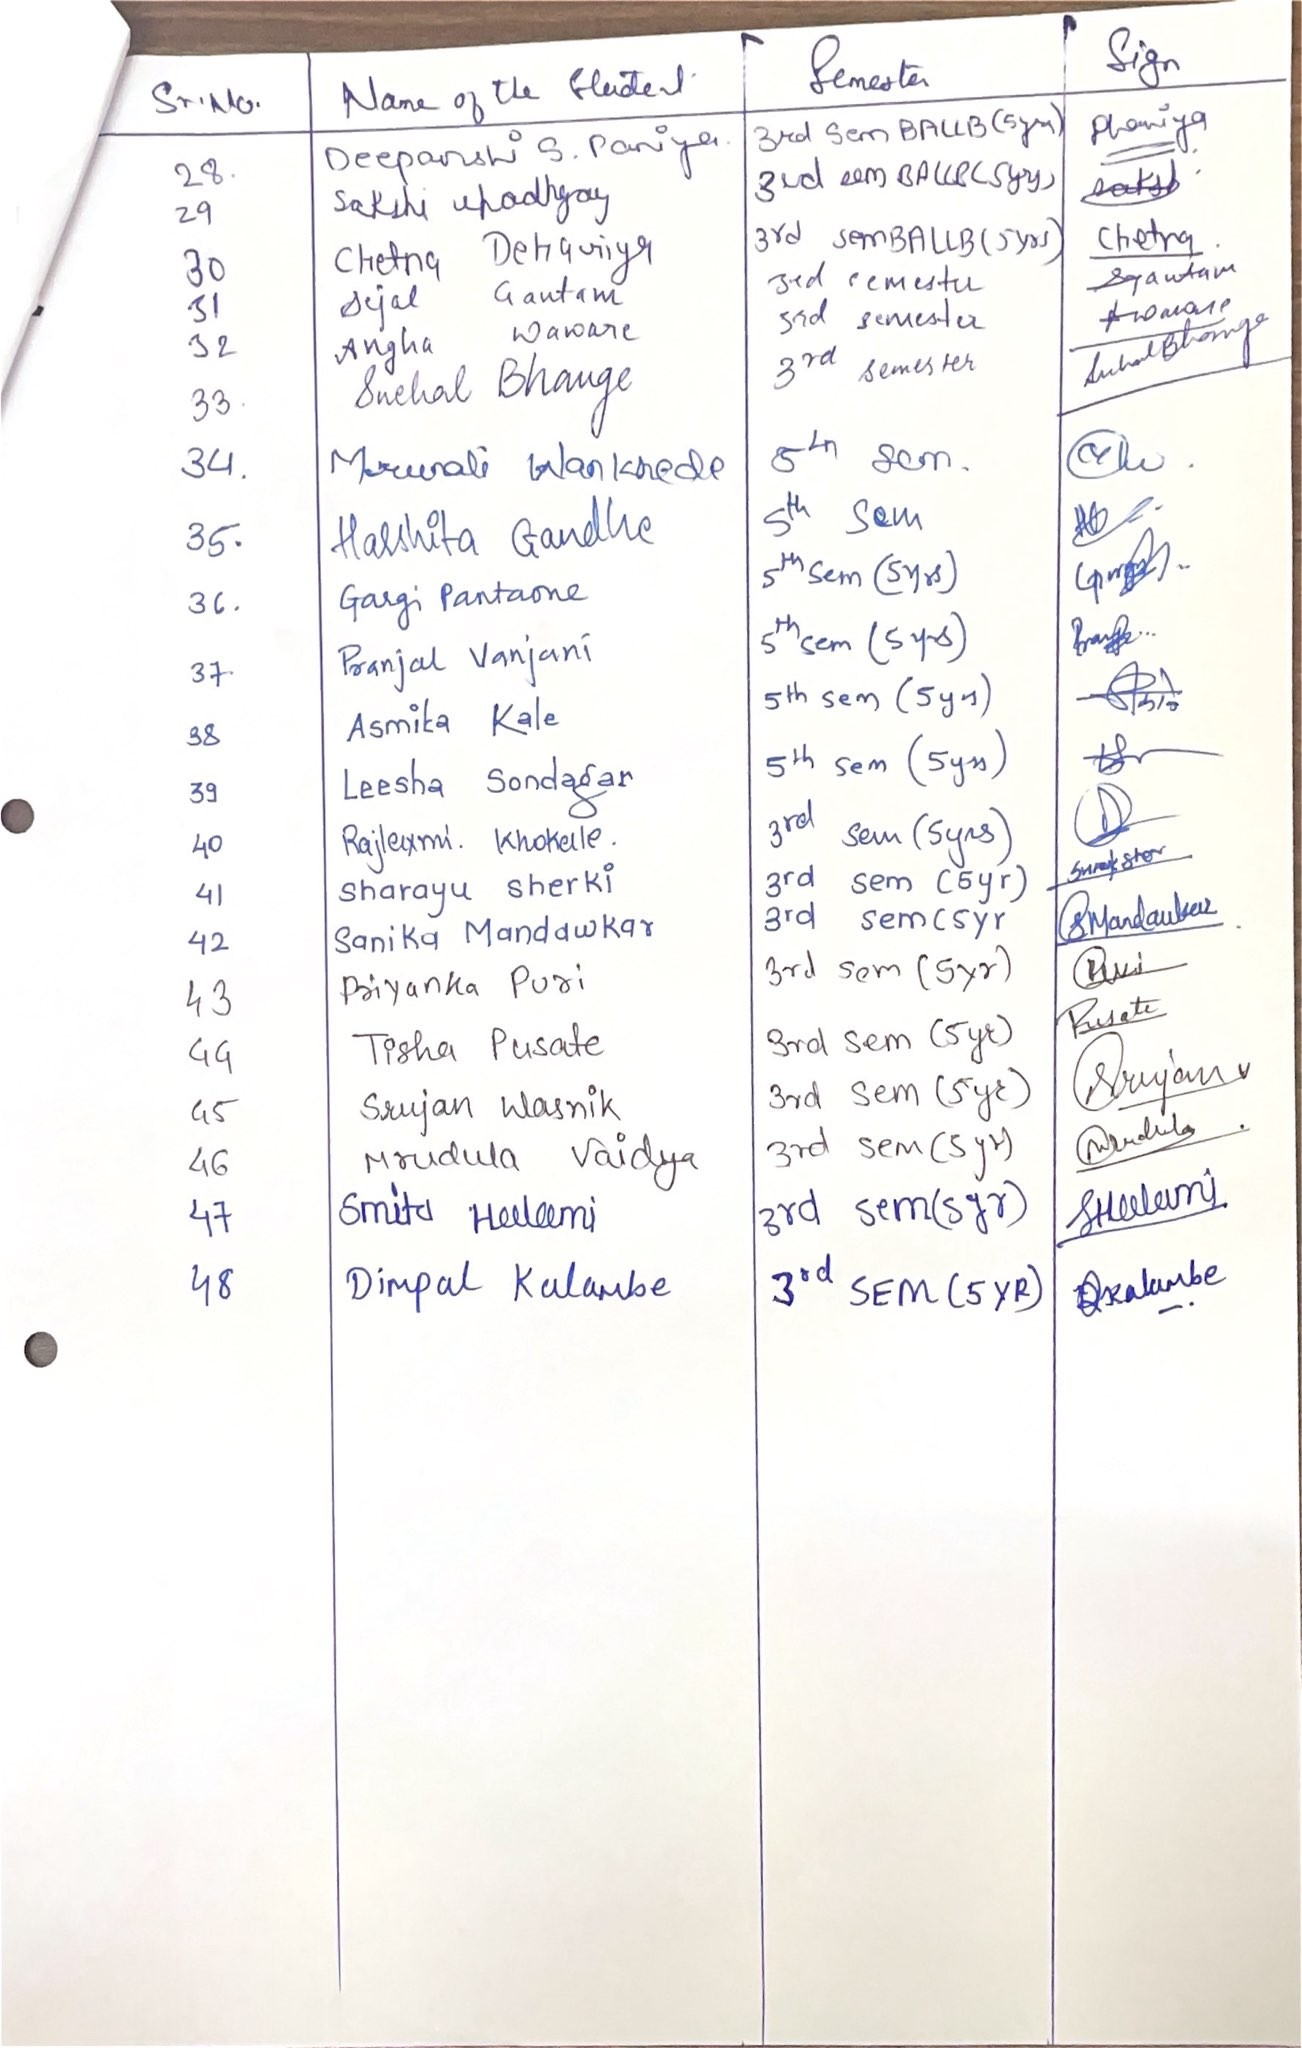 Sr. No. Name of the Student Semester Sign
28. Deepanshi S. Paniya. 3rd Sem BALLB (5yrs)
29 Sakshi Upadhyay 3rd sem BALLB (5yrs)
30 Chetna 3rd sem BALLB (5yrs) Chetna.
31 Sejal Gautam 3rd semester SGautam
32 Angha Waware 3rd semester Awaware
33. Snehal Bhange 3rd semester Snehal Bhange
34. Mrunali Wankhede 5th Sem.
35. Harshita Gandhe 5th Sem
36. Gargi Pantaone 5th Sem (5yrs)
37. Pranjal Vanjani 5th sem (5yrs)
38 Asmita Kale 5th sem (5yrs)
39 Leesha Sondagar 5th sem (5yrs)
40 Rajlaxmi. 3rd sem (5yrs)
41 Sharayu Sherki 3rd sem (5yr)
42 Sanika Mandawkar 3rd sem (5yr SMandawkar
43 Priyanka Puri 3rd sem (5yr) Puri
44 Tisha Pusate 3rd sem (5yr) Pusate
45 Srujan Wasnik 3rd sem (5yr) Srujan
46 Mrudula Vaidya 3rd sem (5yr) Mrudula
47 Smita 3rd sem (5yr)
48 Dimpal Kalambe 3rd SEM (5 YR) Dkalambe